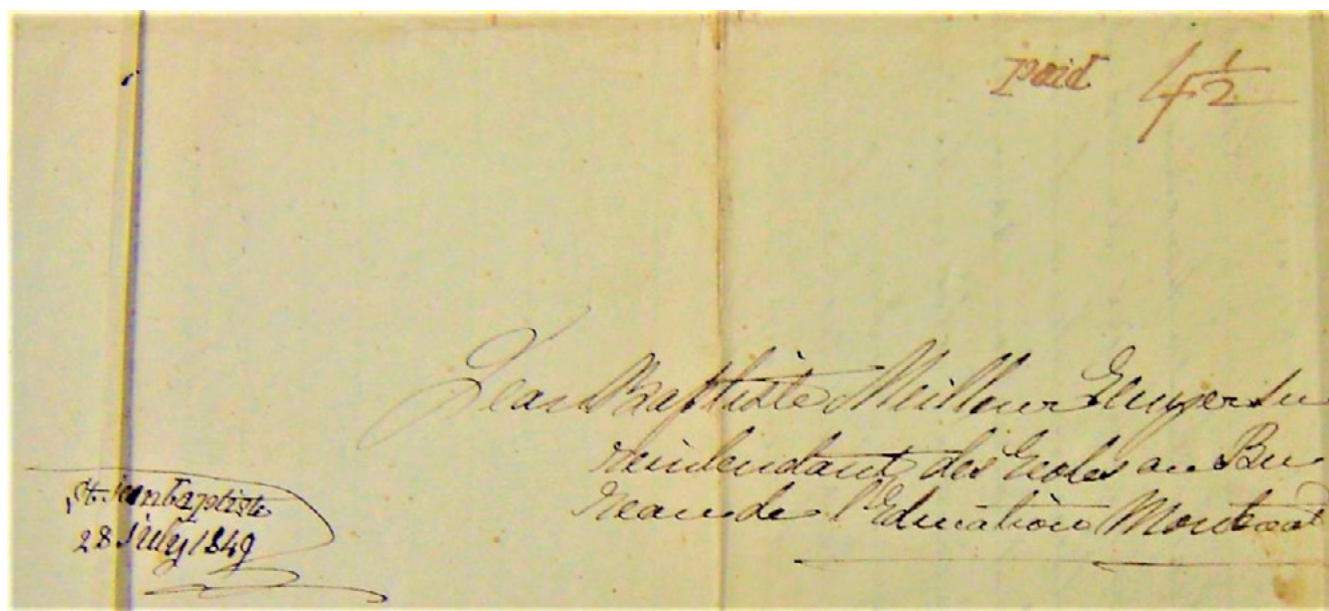 paid 4 1/2
Jean Baptiste Meilleur
des Ecoles au Bu-
reau de l'Education Montreal
St. Jean Baptiste
28 July 1849